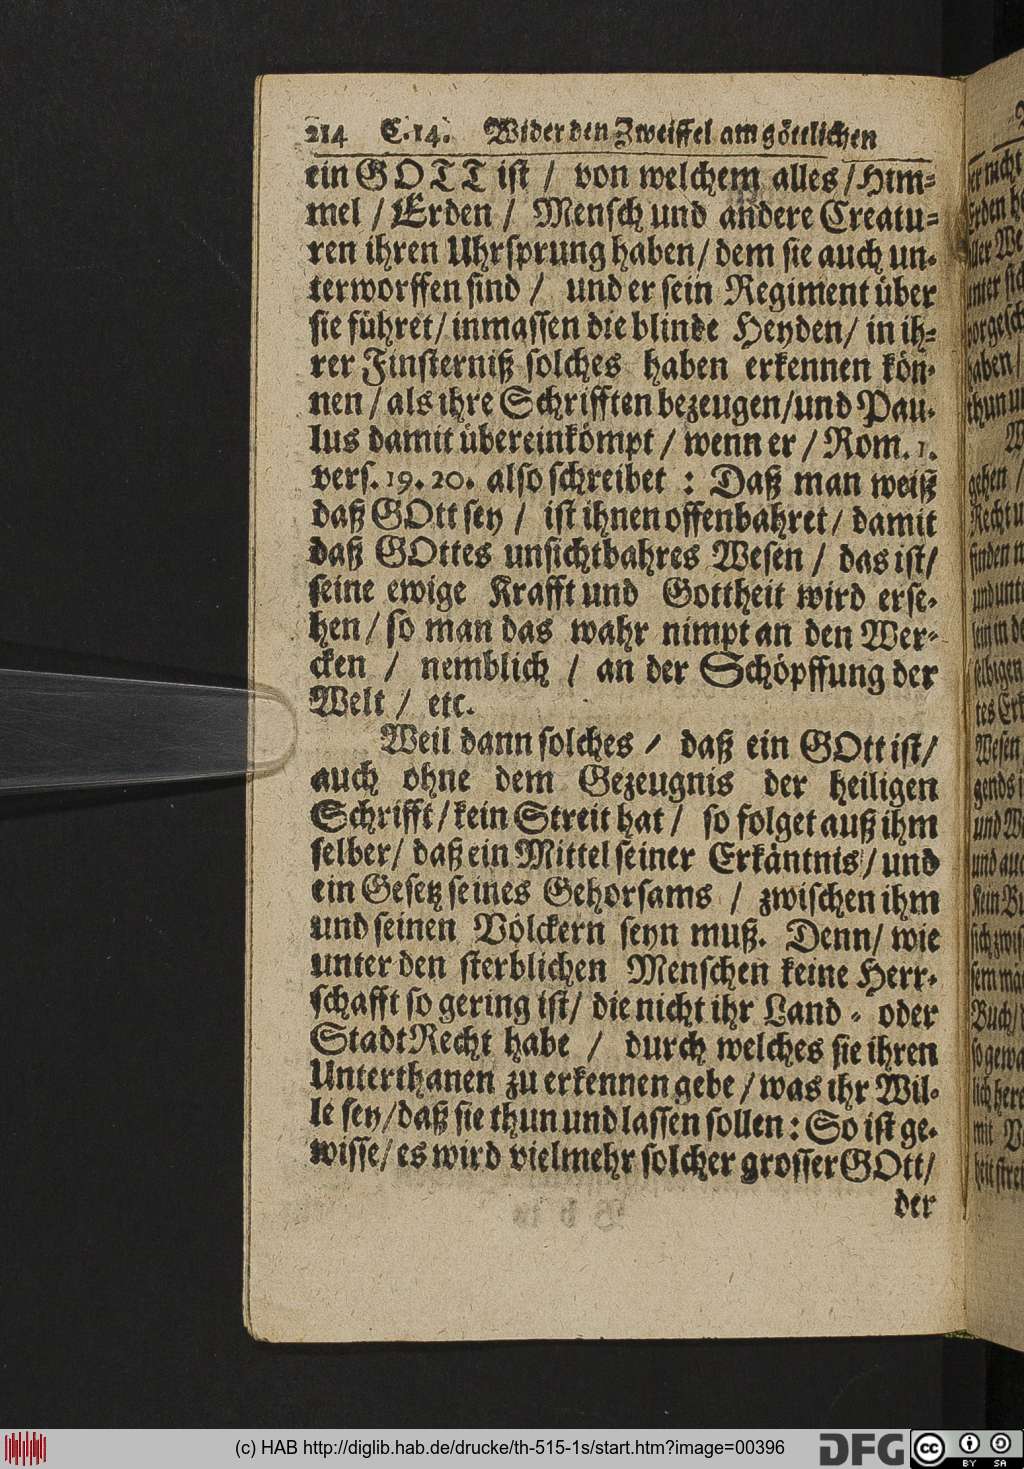 214 C. 14. Wider den Zweiffel am göttlichen
ein GOTT ist / von welchem alles / Him=
mel / Erden / Mensch und andere Creatu=
ren ihren Uhrsprung haben / dem sie auch un=
terworffen sind / und er sein Regiment über
sie führet / inmassen die blinde Heyden / in ih=
rer Finsterniß solches haben erkennen kön=
nen / als ihre Schrifften bezeugen / und Pau=
lus damit übereinkömpt / wenn er / Rom. 1.
vers. 19. 20. also schreibet : Daß man weiß
daß GOtt sey / ist ihnen offenbahret / damit
daß GOttes unsichtbahres Wesen / das ist /
seine ewige Krafft und Gottheit wird erse=
hen / so man das wahr nimpt an den Wer=
cken / nemblich / an der Schöpffung der
Welt / etc.
Weil dann solches / daß ein GOtt ist /
auch ohne dem Gezeugnis der heiligen
Schrifft / kein Streit hat / so folget auß ihm
selber / daß ein Mittel seiner Erkäntnis / und
ein Gesetz seines Gehorsams / zwischen ihm
und seinen Völckern seyn muß. Denn / wie
unter den sterblichen Menschen keine Herr=
schafft so gering ist / die nicht ihr Land = oder
Stadt Recht habe / durch welches sie ihren
Unterthanen zu erkennen gebe / was ihr Wil=
le sey / daß sie thun und lassen sollen : So ist ge=
wisse / es wird vielmehr solcher grosser GOtt /
der
(c) HAB http://diglib.hab.de/drucke/th-515-1s/start.htm?image=00396
DFG
cc BY SA